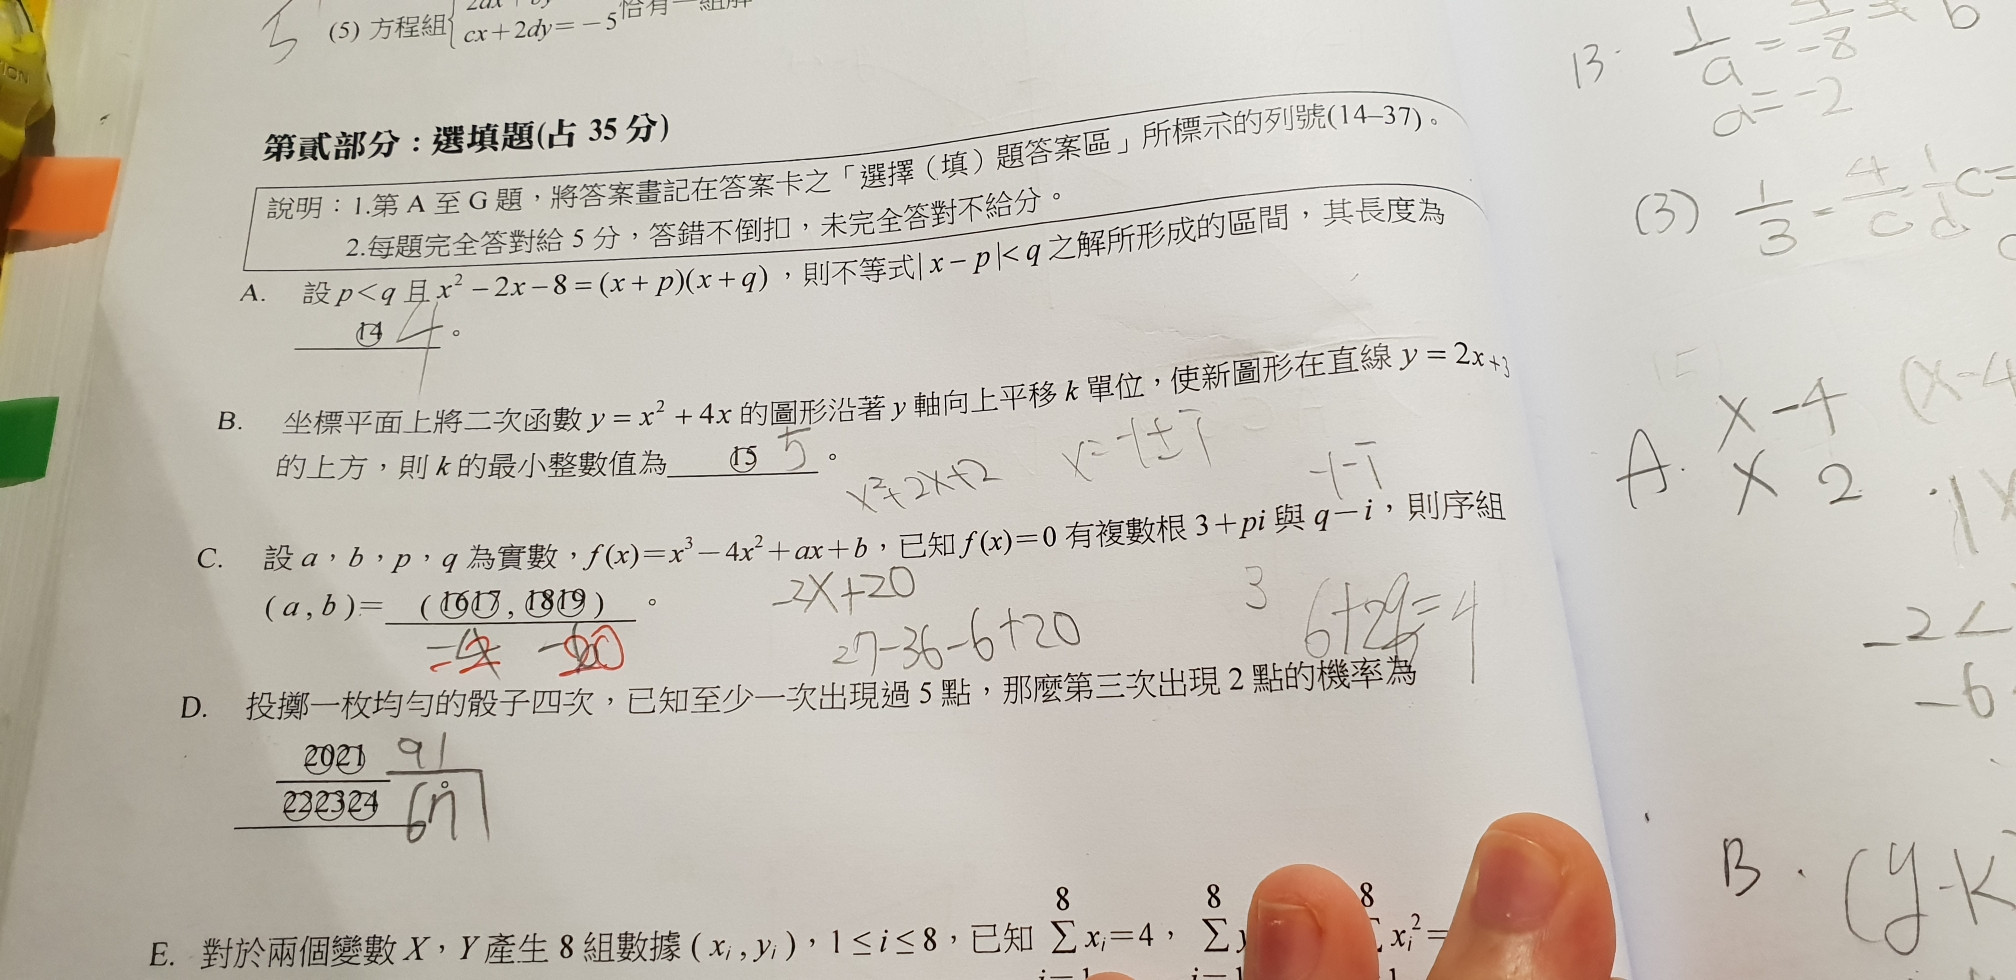 (5) 方程組
cx+2dy=-5 恰有一組解
5
第貳部分：選填題(占 35 分)
說明：1.第 A 至 G 題，將答案畫記在答案卡之「選擇（填）題答案區」所標示的列號(14–37)。
2.每題完全答對給 5 分，答錯不倒扣，未完全答對不給分。
A. 設 p<q 且 x²-2x-8=(x+p)(x+q)，則不等式|x-p|<q 之解所形成的區間，其長度為
⑭ 4 。
B. 坐標平面上將二次函數 y=x²+4x 的圖形沿著 y 軸向上平移 k 單位，使新圖形在直線 y=2x+3
的上方，則 k 的最小整數值為 ⑮ 5 。
x²+2x+2
x=-1±i
-1-i
C. 設 a，b，p，q 為實數，f(x)=x³-4x²+ax+b，已知 f(x)=0 有複數根 3+pi 與 q-i，則序組
(a,b)= (⑯⑰,⑱⑲) 。
-2x+20
3
6+2q=4
27-36-6+20
D. 投擲一枚均勻的骰子四次，已知至少一次出現過 5 點，那麼第三次出現 2 點的機率為
⑳㉑ 91
㉒㉓㉔ 671
E. 對於兩個變數 X，Y 產生 8 組數據 (xᵢ,yᵢ)，1≤i≤8，已知 8∑xᵢ=4，8∑ 8 xᵢ²=
B.
a=-2
(3)
A. x -4
x 2
-2<
-6
B. (y-k